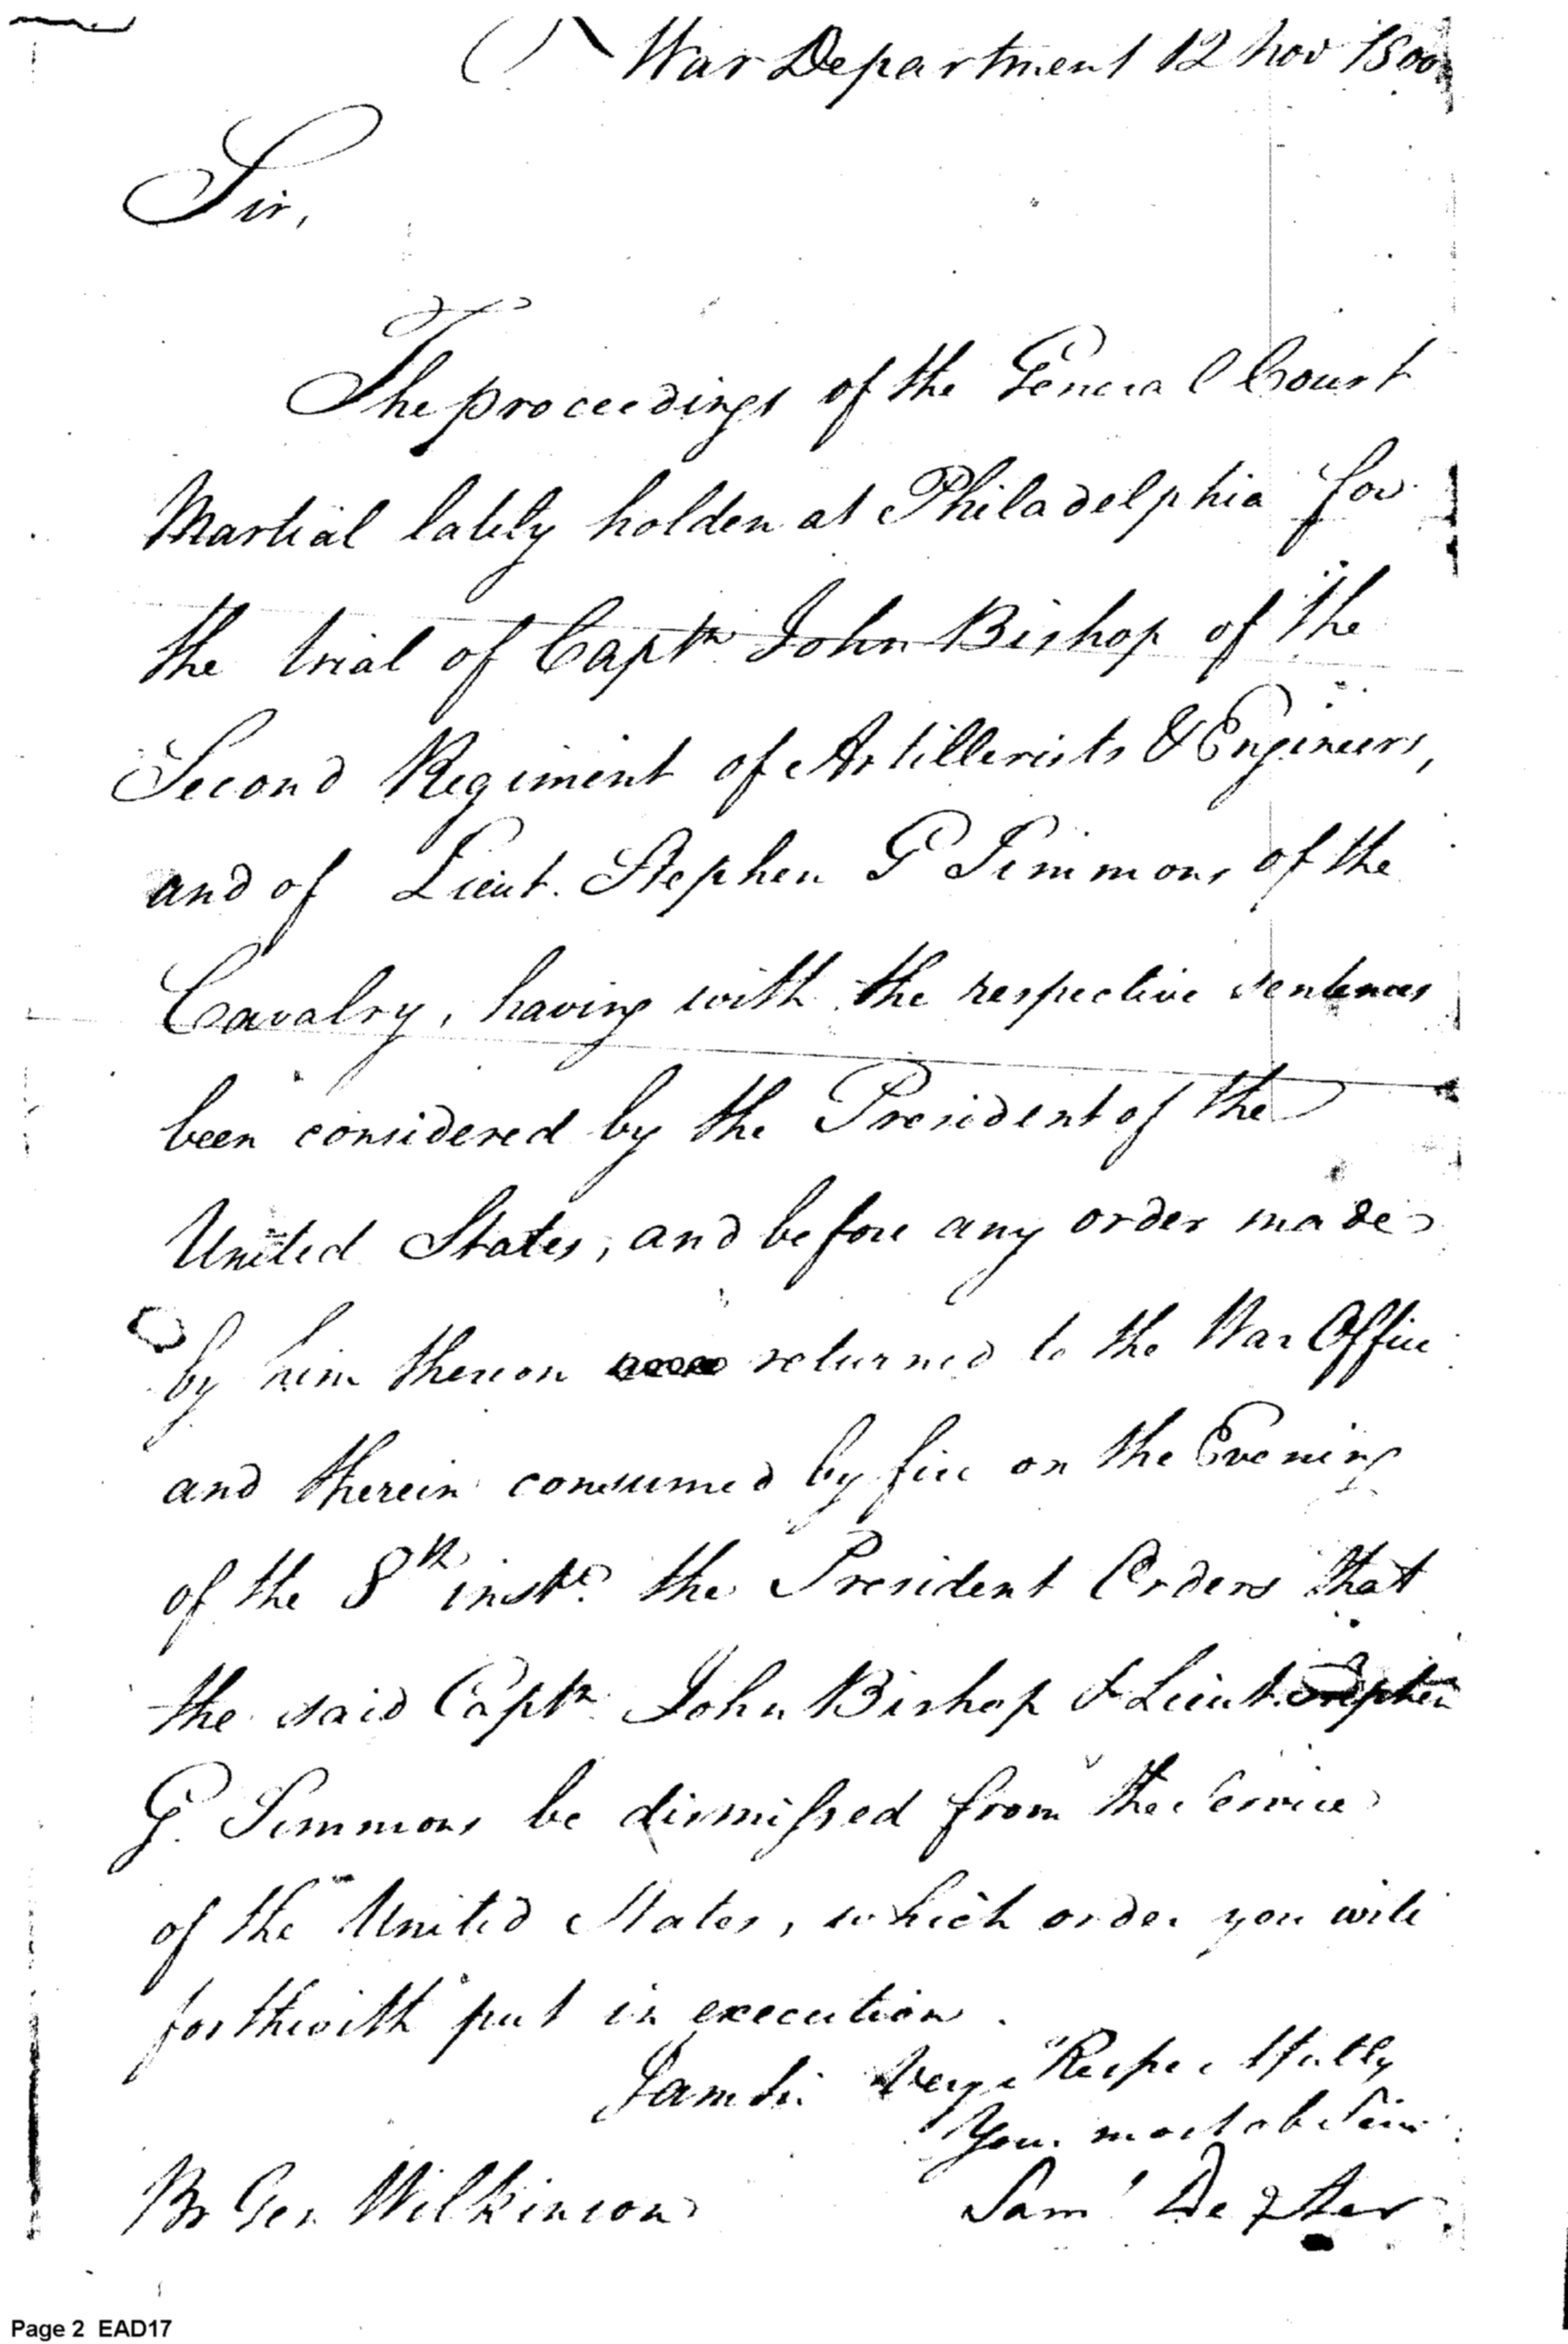 War Department 12 Nov 1800
Sir,
The proceedings of the General Court
Martial lately holden at Philadelphia for
the trial of Captn John Bishop of the
Second Regiment of Artillerists & Engineers,
and of Lieut. Stephen G Simmons of the
Cavalry, having with the respective sentences
been considered by the President of the
United States, and before any order made
by him thereon returned to the War Office
and therein consumed by fire on the Evening
of the 8th inst. the President Orders that
the said Captn John Bishop & Lieut. Stephen
G. Simmons be dismissed from the Service
of the United States, which order you will
forthwith put in execution.
I am Sir Very Respectfully
Your most ob Serv
Br Gen Wilkinson
Saml Dexter
Page 2 EAD17